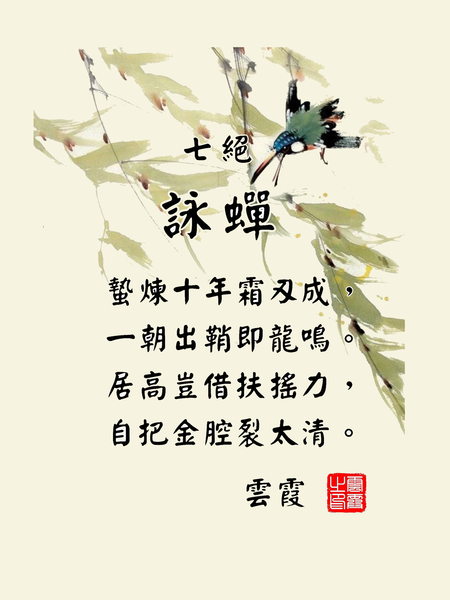 七絕
詠蟬
蟄煉十年霜刃成，
一朝出鞘即龍鳴。
居高豈借扶搖力，
自把金腔裂太清。
雲霞
雲霞之印